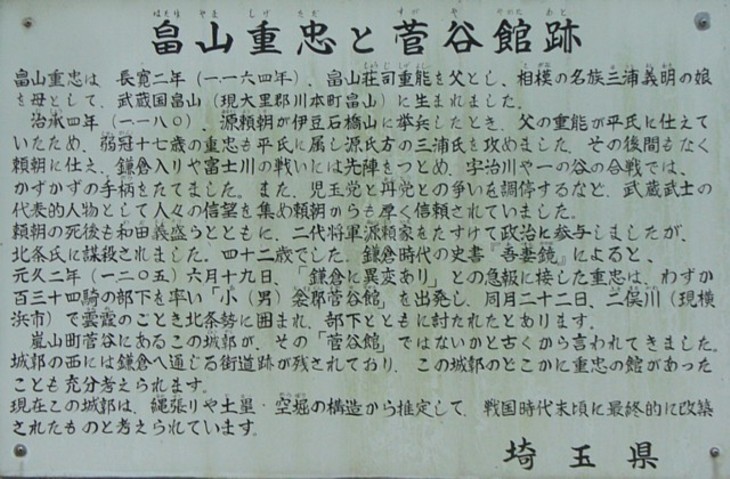 畠山重忠と菅谷館跡
畠山重忠は、長寛二年（一一六四年）、畠山荘司重能を父とし、相模の名族三浦義明の娘
を母として、武蔵国畠山（現大里郡川本町畠山）に生まれました。
治承四年（一一八〇）、源頼朝が伊豆石橋山に挙兵したとき、父の重能が平氏に仕えて
いたため、弱冠十七歳の重忠も平氏に属し源氏方の三浦氏を攻めました。その後間もなく
頼朝に仕え、鎌倉入りや富士川の戦いには先陣をつとめ、宇治川や一の谷の合戦では、
かずかずの手柄をたてました。また、児玉党と丹党との争いを調停するなど、武蔵武士の
代表的人物として人々の信望を集め頼朝からも厚く信頼されていました。
頼朝の死後も和田義盛らとともに、二代将軍源頼家をたすけて政治に参与しましたが、
北条氏に謀殺されました。四十二歳でした。鎌倉時代の史書『吾妻鏡』によると、
元久二年（一二〇五）六月十九日、「鎌倉に異変あり」との急報に接した重忠は、わずか
百三十四騎の部下を率い「小（男）衾郡菅谷館」を出発し、同月二十二日、二俣川（現横
浜市）で雲霞のごとき北条勢に囲まれ、部下とともに討たれたとあります。
嵐山町菅谷にあるこの城郭が、その「菅谷館」ではないかと古くから言われてきました。
城郭の西には鎌倉へ通じる街道跡が残されており、この城郭のどこかに重忠の館があった
ことも充分考えられます。
現在この城郭は、縄張りや土塁・空堀の構造から推定して、戦国時代末頃に最終的に改築
されたものと考えられています。
埼玉県